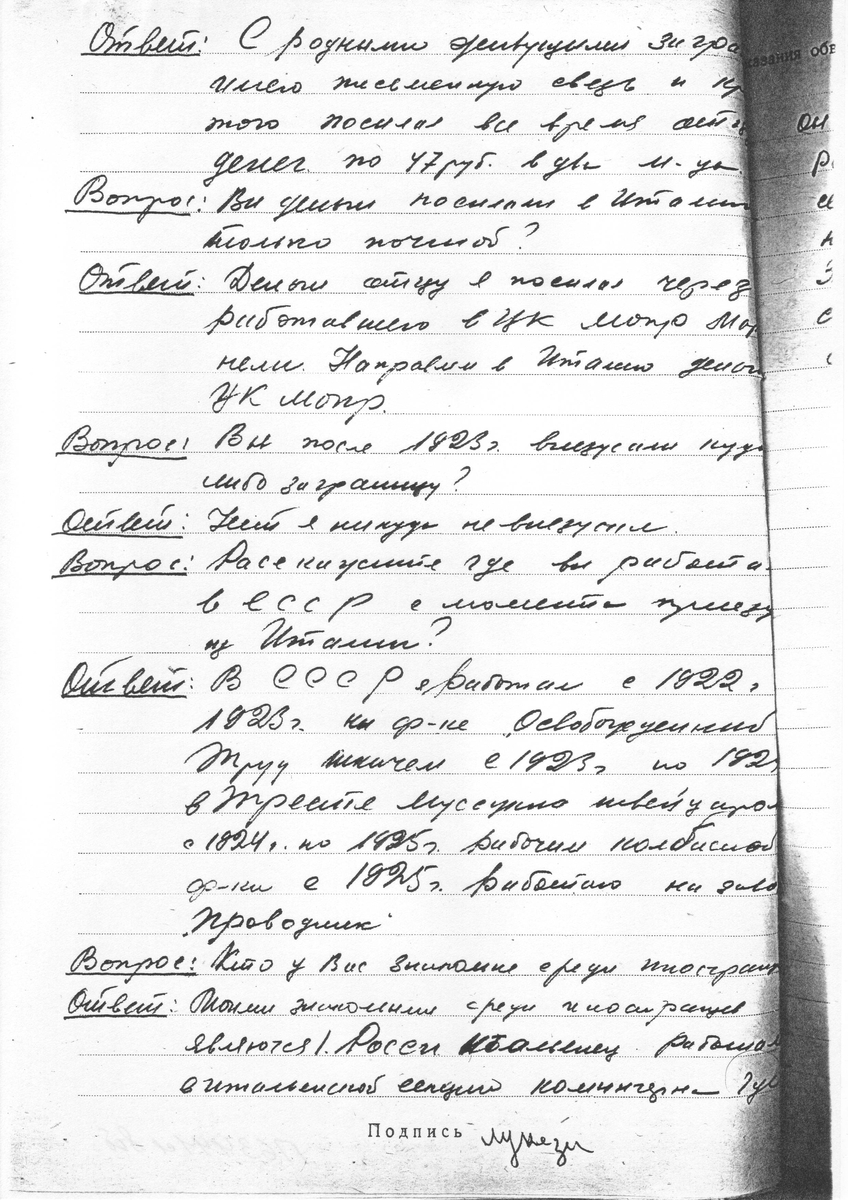 Ответ: С родными живущими за гра
имею письменную связь и кр
того посылал все время отцу
денег по 47 руб. в два м-ца.
Вопрос: Вы деньги посылали в Италию
только почтой?
Ответ: Деньги отцу я посылал через
работавшего в ЦК МОПР Мор
нели. Направлял в Италию деньги
ЦК МОПР.
Вопрос: Вы после 1923 г. выезжали куда
либо заграницу?
Ответ: Нет я никуда не выезжал.
Вопрос: Расскажите где вы работа
в СССР с момента приезда
из Италии?
Ответ: В СССР я работал с 1922 г
1923 г. на ф-ке „Освобожденный
Труд ткачем с 1923 г по 192
в тресте Моссукно швейцаром
с 1924 г. по 1925 г. рабочим колбасной
ф-ки с 1925 г. работаю на заво
„Проводник"
Вопрос: Кто у Вас знакомые среди иностранц
Ответ: Моими знакомыми среди иностранцев
являются 1. Росси итальянец работал
в итальянской секции коминтерна
Подпись Лунези
казания обв
он